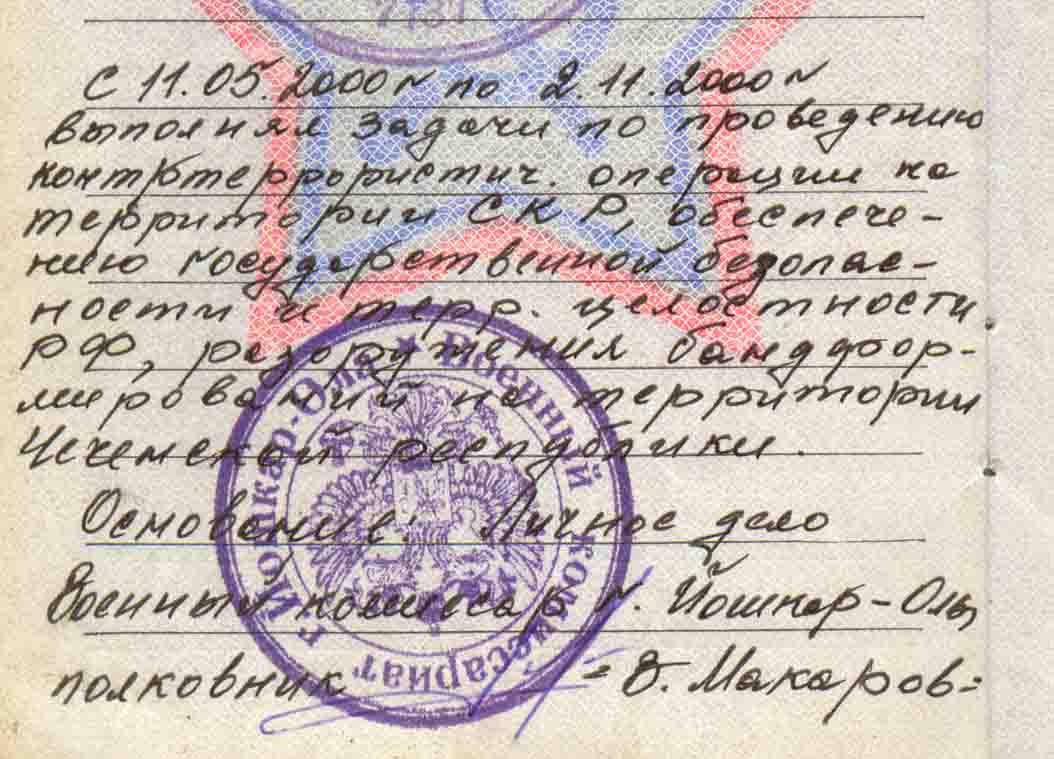 С 11.05.2000 г по 2.11.2000 г
выполнял задачи по проведению
контртеррористич. операции на
территории СКР, обеспече-
нию государственной безопас-
ности и терр. целостности
РФ, разоружения бандфор-
мирований на территории
Чеченской республики.
Основание: Личное дело
Военный комиссар г. Йошкар-Олы
полковник = В. Макаров=
Военный комиссариат г. Йошкар-Ола